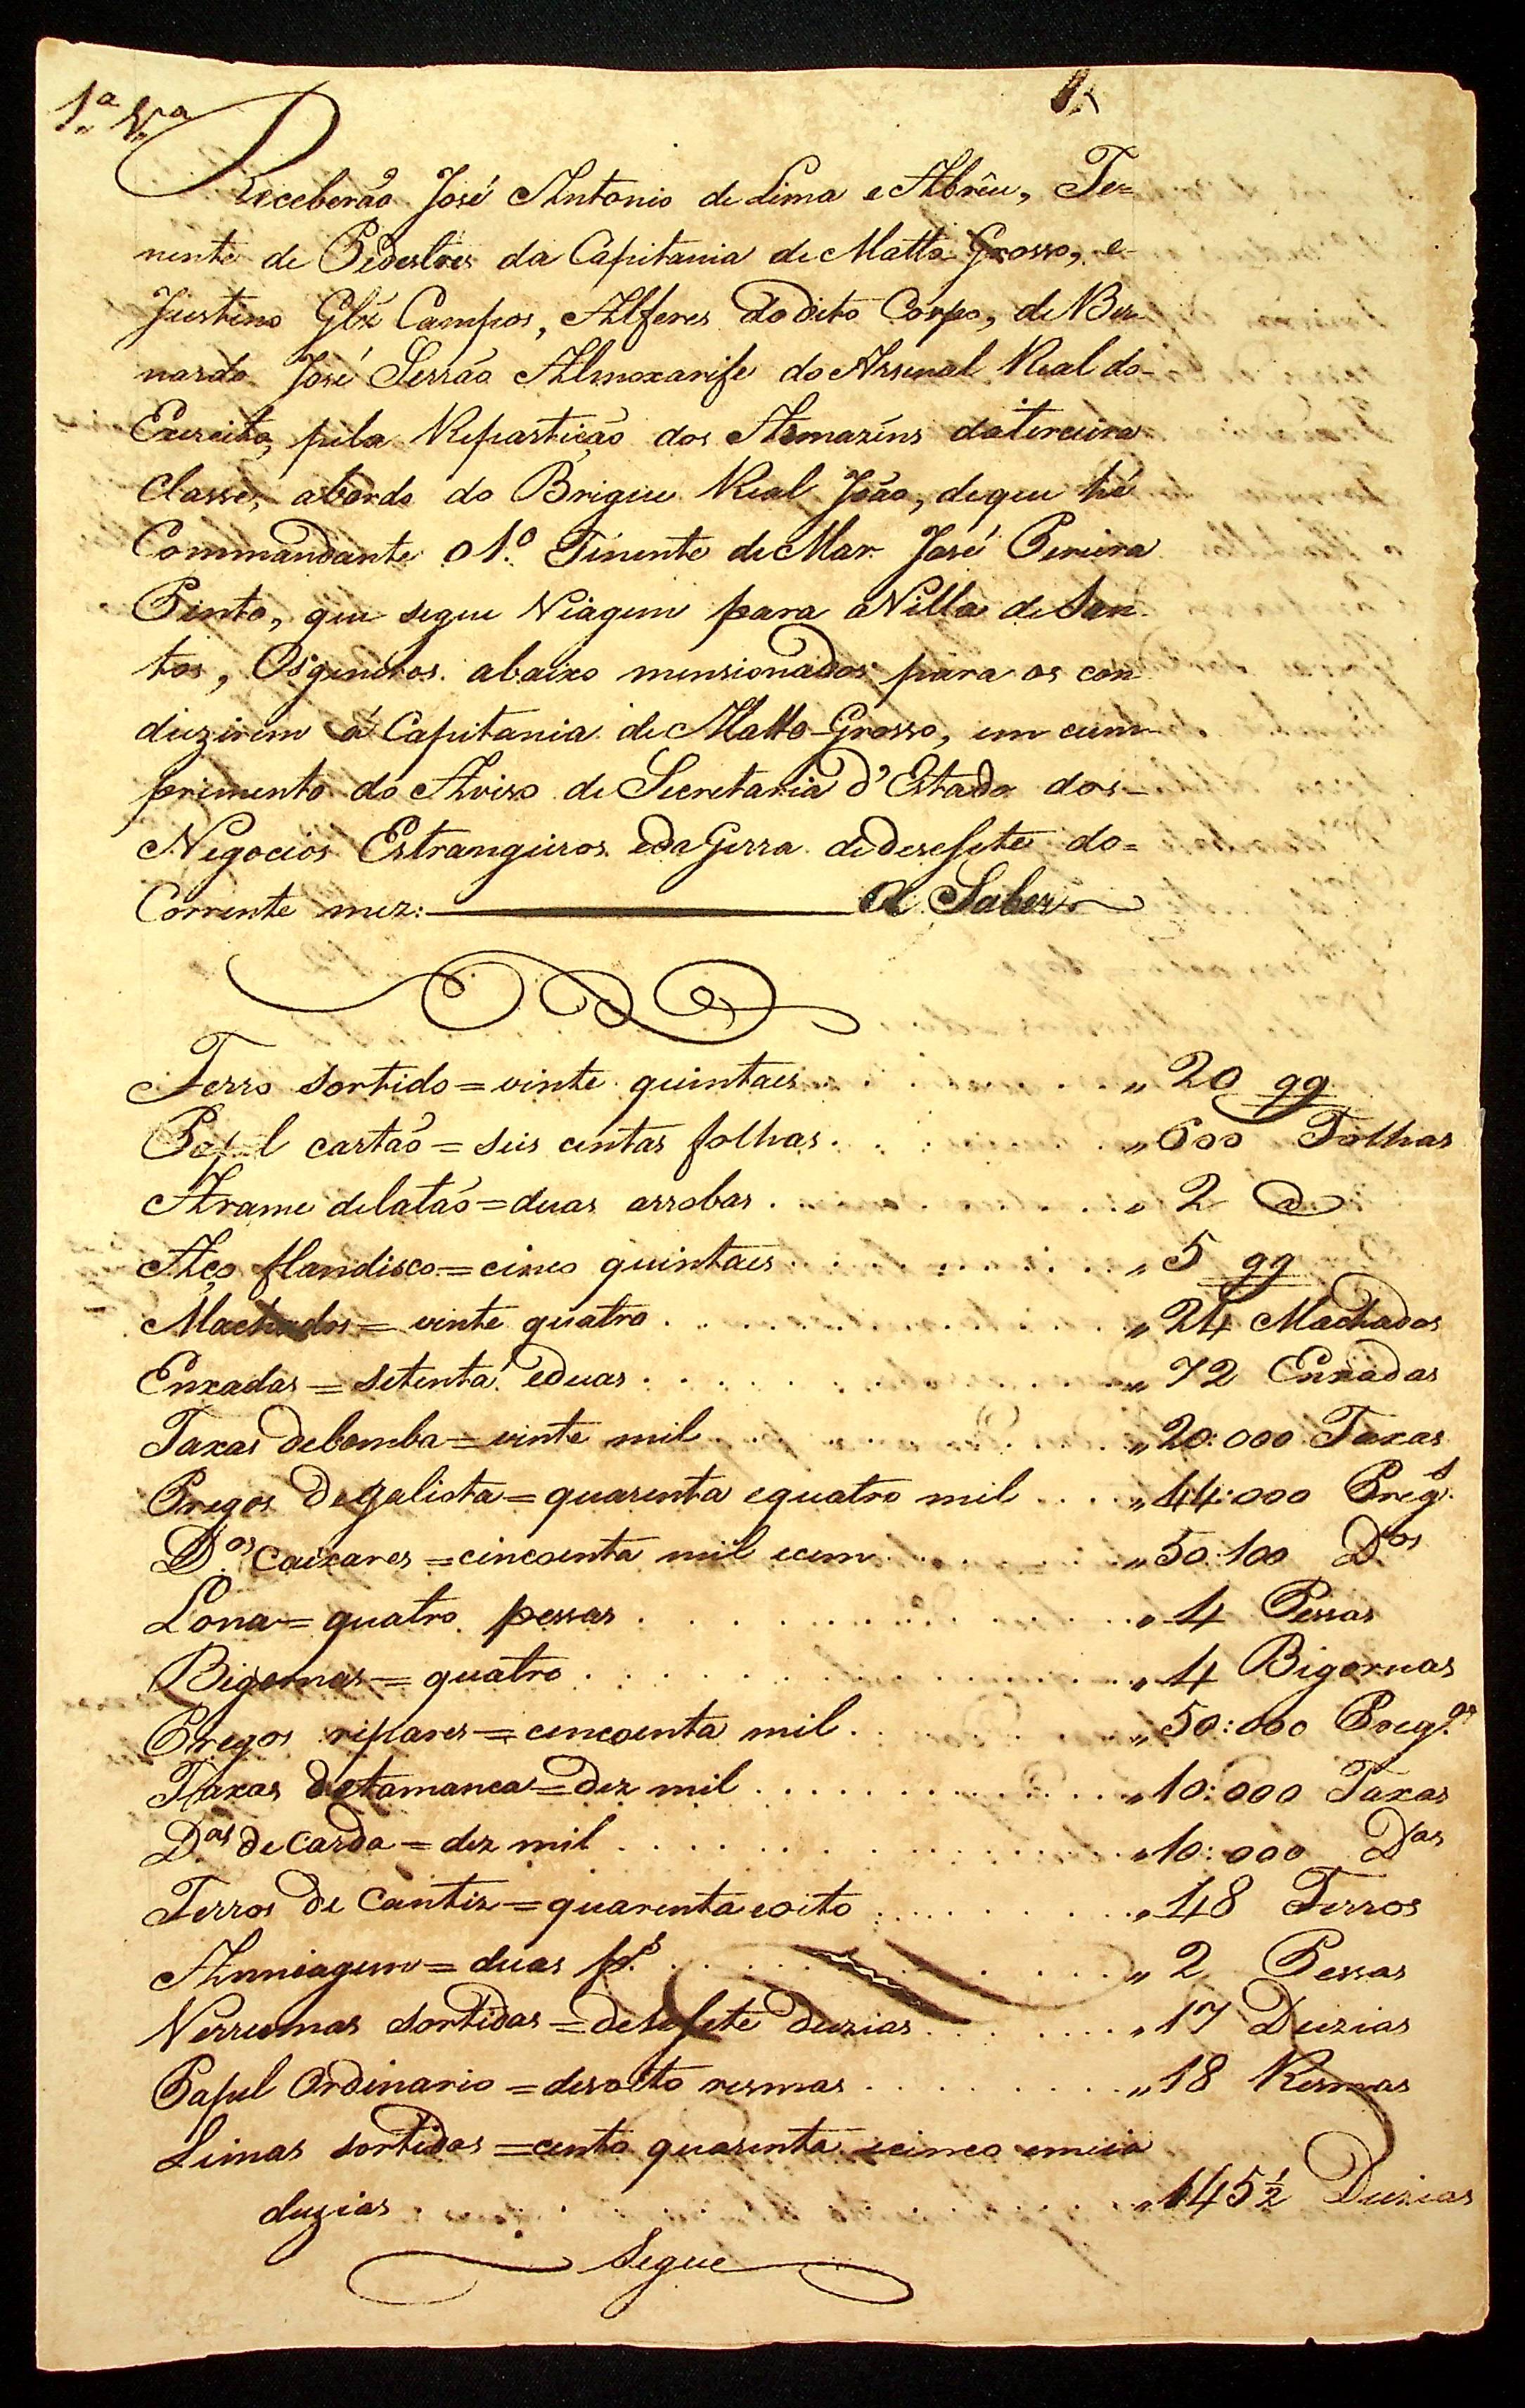 1.ª V.ª
Receberão José Antonio de Lima e Abrêu, Te=
nente de Pedestres da Capitania de Matto Grosso, e
Justino Glz Campos, Alferes do dito Corpo, de Ber
nardo José Serrão Almoxarife do Arsenal Real do
Exercito, pela Repartição dos Armazéns da terceira
Classe, abordo do Brigue Real João, de que hé
Commandante o 1.º Tenente de Mar José Pereira
Pinto, que segue Viagem para a Villa de San
tos, Os generos abaixo mensionados para os con
duzirem á Capitania de Matto-Grosso, em cum
primento do Aviso de Secretaria d'Estado dos
Negocios Estrangeiros e da Gerra de desesete do=
Corrente mez: A Saber
Ferro sortido = vinte quintaes . . . . „ 20 qq
Papel cartão = seis centas folhas . . . . „ 600 Folhas
Arame de latão = duas arrobas . . . . „ 2 @
Aço flandisco = cinco quintaes . . . . „ 5 qq
Machados = vinte quatro . . . . „ 24 Machados
Enxadas = setenta e duas . . . . „ 72 Enxadas
Taxas de bomba = vinte mil . . . . „ 20:000 Taxas
Pregos de galiota = quarenta e quatro mil . . . . „ 44:000 Preg.s
D.os caixares = cincoenta mil e cem . . . . „ 50:100 D.os
Lona = quatro pessas . . . . „ 4 Pessas
Bigornas = quatro . . . . „ 4 Bigornas
Pregos ripares = cincoenta mil . . . . „ 50:000 Preg.os
Taxas de tamanca = dez mil . . . . „ 10:000 Taxas
D.as de Carda = dez mil . . . . „ 10:000 D.as
Ferros de Cantis = quarenta e oito . . . . „ 48 Ferros
Anniagem = duas p.s . . . . „ 2 Pessas
Verrumas sortidas = desesete duzias . . . . „ 17 Duzias
Papel Ordinario = desoito resmas . . . . „ 18 Resmas
Limas sortidas = cento quarenta e cinco e meia
duzias . . . . „ 145½ Duzias
Segue